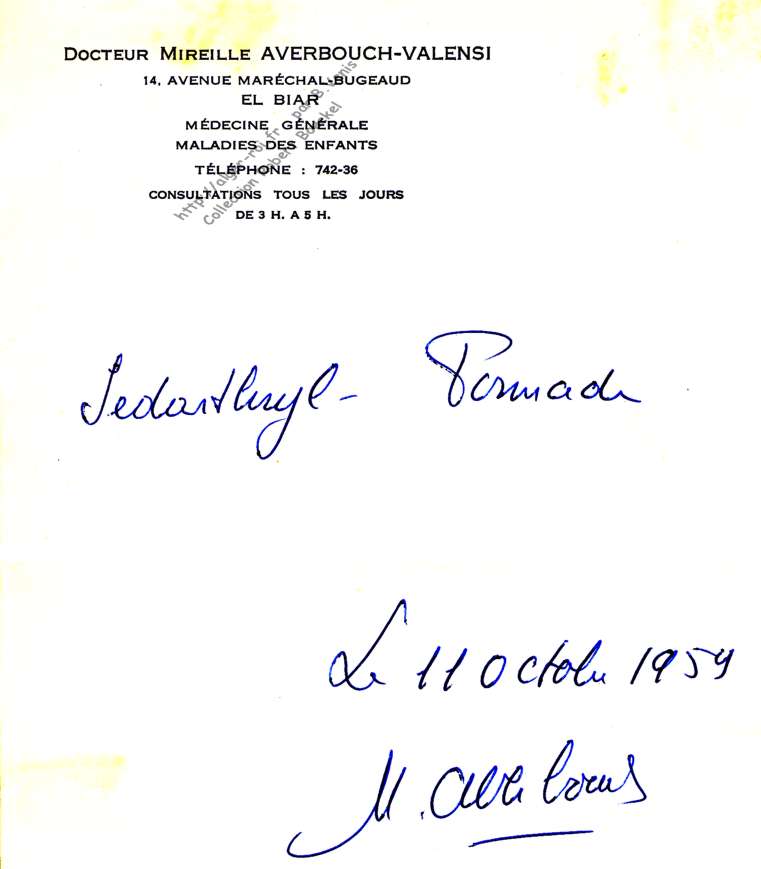 DOCTEUR MIREILLE AVERBOUCH-VALENSI
14, AVENUE MARÉCHAL-BUGEAUD
EL BIAR
MÉDECINE GÉNÉRALE
MALADIES DES ENFANTS
TÉLÉPHONE : 742-36
CONSULTATIONS TOUS LES JOURS
DE 3 H. A 5 H.
http://alger-roi.fr par B. Venis
Collection Robert
Sedarthryl - Pommade
Le 11 Octobre 1959
M. Averbouch